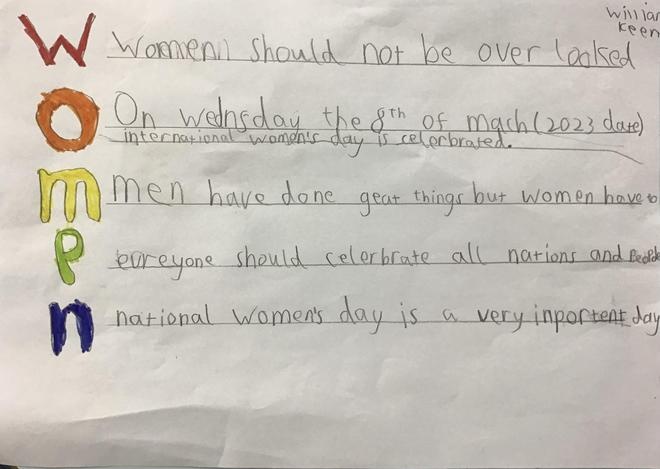 William
Keen
W Women should not be over looked
O On wednsday the 8th of mach (2023 date)
international women's day is celerbrated.
m men have done geat things but women have to
e eureyone should celerbrate all nations and People
n national women's day is a very inportent day